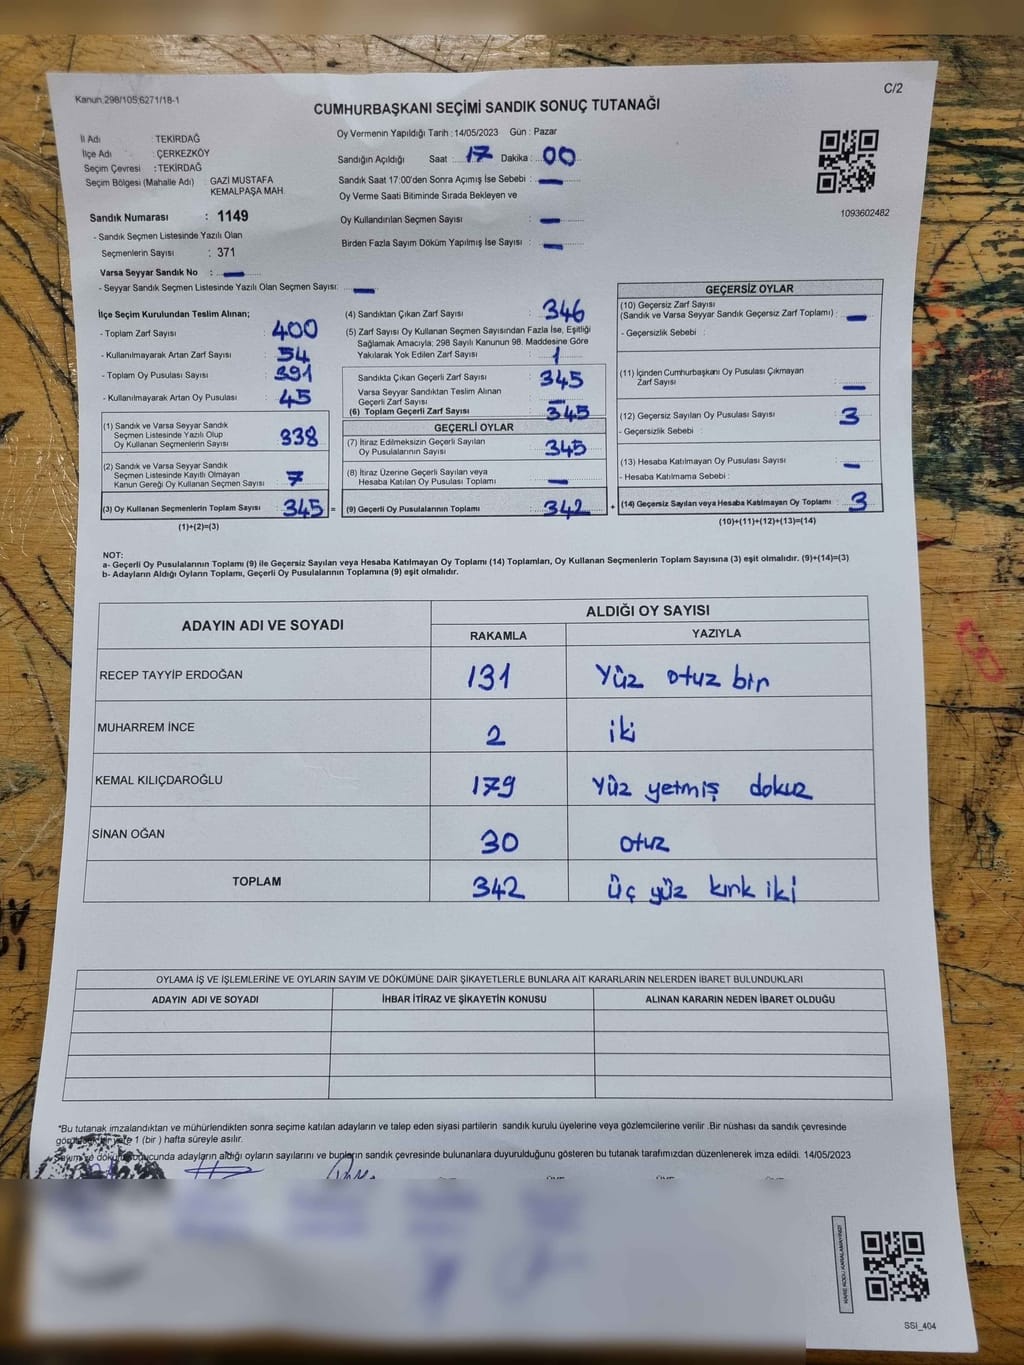 Kanun,298/105;6271/18-1
C/2
CUMHURBAŞKANI SEÇİMİ SANDIK SONUÇ TUTANAĞI
İl Adı : TEKİRDAĞ
İlçe Adı : ÇERKEZKÖY
Seçim Çevresi : TEKİRDAĞ
Seçim Bölgesi (Mahalle Adı) GAZI MUSTAFA
KEMALPAŞA MAH.
Sandık Numarası : 1149
- Sandık Seçmen Listesinde Yazılı Olan
Seçmenlerin Sayısı : 371
Varsa Seyyar Sandık No : —
- Seyyar Sandık Seçmen Listesinde Yazılı Olan Seçmen Sayısı: —
Oy Vermenin Yapıldığı Tarih : 14/05/2023 Gün : Pazar
Sandığın Açıldığı Saat : 17 Dakika : 00
Sandık Saat 17:00'den Sonra Açımış İse Sebebi : —
Oy Verme Saati Bitiminde Sırada Bekleyen ve
Oy Kullandırılan Seçmen Sayısı : —
Birden Fazla Sayım Döküm Yapılmış İse Sayısı : —
1093602482
İlçe Seçim Kurulundan Teslim Alınan;
- Toplam Zarf Sayısı : 400
- Kullanılmayarak Artan Zarf Sayısı : 54
- Toplam Oy Pusulası Sayısı : 391
- Kullanılmayarak Artan Oy Pusulası : 45
(1) Sandık ve Varsa Seyyar Sandık
Seçmen Listesinde Yazılı Olup
Oy Kullanan Seçmenlerin Sayısı : 338
(2) Sandık ve Varsa Seyyar Sandık
Seçmen Listesinde Kayıtlı Olmayan
Kanun Gereği Oy Kullanan Seçmen Sayısı : 7
(3) Oy Kullanan Seçmenlerin Toplam Sayısı : 345 =
(1)+(2)=(3)
(4) Sandıktan Çıkan Zarf Sayısı : 346
(5) Zarf Sayısı Oy Kullanan Seçmen Sayısından Fazla İse, Eşitliği
Sağlamak Amacıyla; 298 Sayılı Kanunun 98. Maddesine Göre
Yakılarak Yok Edilen Zarf Sayısı : 1
Sandıkta Çıkan Geçerli Zarf Sayısı : 345
Varsa Seyyar Sandıktan Teslim Alınan
Geçerli Zarf Sayısı : —
(6) Toplam Geçerli Zarf Sayısı : 345
GEÇERLİ OYLAR
(7) İtiraz Edilmeksizin Geçerli Sayılan
Oy Pusulalarının Sayısı : 345
(8) İtiraz Üzerine Geçerli Sayılan veya
Hesaba Katılan Oy Pusulası Toplamı : —
(9) Geçerli Oy Pusulalarının Toplamı : 342 +
GEÇERSİZ OYLAR
(10) Geçersiz Zarf Sayısı
(Sandık ve Varsa Seyyar Sandık Geçersiz Zarf Toplamı) : —
- Geçersizlik Sebebi :
(11) İçinden Cumhurbaşkanı Oy Pusulası Çıkmayan
Zarf Sayısı : —
(12) Geçersiz Sayılan Oy Pusulası Sayısı : 3
- Geçersizlik Sebebi :
(13) Hesaba Katılmayan Oy Pusulası Sayısı : —
- Hesaba Katılmama Sebebi :
(14) Geçersiz Sayılan veya Hesaba Katılmayan Oy Toplamı : 3
(10)+(11)+(12)+(13)=(14)
NOT:
a- Geçerli Oy Pusulalarının Toplamı (9) ile Geçersiz Sayılan veya Hesaba Katılmayan Oy Toplamı (14) Toplamları, Oy Kullanan Seçmenlerin Toplam Sayısına (3) eşit olmalıdır. (9)+(14)=(3)
b- Adayların Aldığı Oyların Toplamı, Geçerli Oy Pusulalarının Toplamına (9) eşit olmalıdır.
ADAYIN ADI VE SOYADI
ALDIĞI OY SAYISI
RAKAMLA YAZIYLA
RECEP TAYYİP ERDOĞAN 131 Yüz otuz bir
MUHARREM İNCE 2 iki
KEMAL KILIÇDAROĞLU 179 Yüz yetmiş dokuz
SİNAN OĞAN 30 otuz
TOPLAM 342 üç yüz kırk iki
OYLAMA İŞ VE İŞLEMLERİNE VE OYLARIN SAYIM VE DÖKÜMÜNE DAİR ŞİKAYETLERLE BUNLARA AİT KARARLARIN NELERDEN İBARET BULUNDUKLARI
ADAYIN ADI VE SOYADI İHBAR İTİRAZ VE ŞİKAYETİN KONUSU ALINAN KARARIN NEDEN İBARET OLDUĞU
*Bu tutanak imzalandıktan ve mühürlendikten sonra seçime katılan adayların ve talep eden siyasi partilerin sandık kurulu üyelerine veya gözlemcilerine verilir .Bir nüshası da sandık çevresinde
1 (bir ) hafta süreyle asılır.
adayların aldığı oyların sayılarını ve bunların sandık çevresinde bulunanlara duyurulduğunu gösteren bu tutanak tarafımızdan düzenlenerek imza edildi. 14/05/2023
SSİ_404